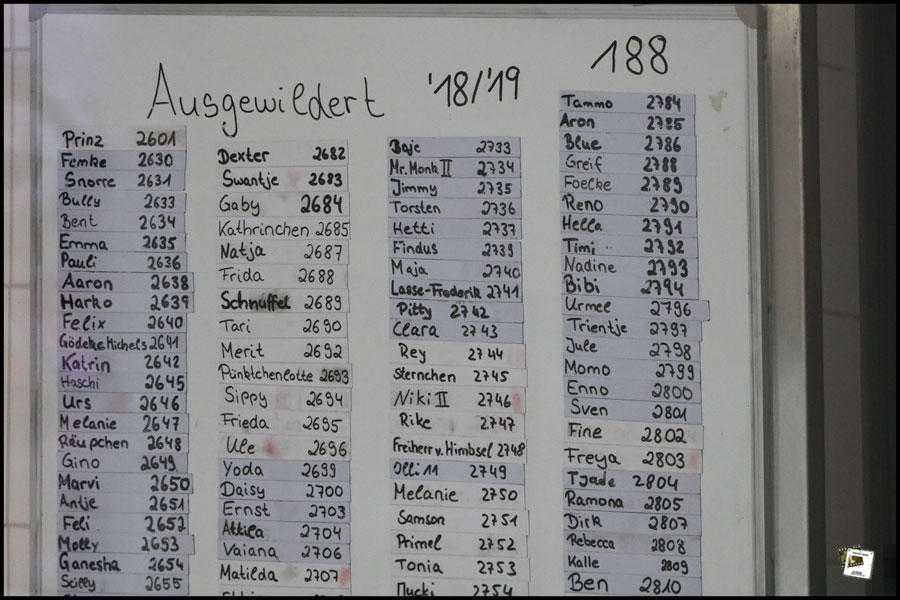 Ausgewildert '18/'19 188
Prinz 2601
Femke 2630
Snorre 2631
Bully 2633
Bent 2634
Emma 2635
Pauli 2636
Aaron 2638
Harko 2639
Felix 2640
Gödeke Michels 2641
Katrin 2642
Haschi 2645
Urs 2646
Melanie 2647
Räupchen 2648
Gino 2649
Marvi 2650
Antje 2651
Feli 2652
Molly 2653
Ganesha 2654
Scilly 2655
Dexter 2682
Swantje 2683
Gaby 2684
Kathrinchen 2685
Natja 2687
Frida 2688
Schnuffel 2689
Tari 2690
Merit 2692
Pünktchenlotte 2693
Sippy 2694
Frieda 2695
Ule 2696
Yoda 2699
Daisy 2700
Ernst 2703
Attila 2704
Vaiana 2706
Matilda 2707
Boje 2733
Mr. Monk II 2734
Jimmy 2735
Torsten 2736
Hetti 2737
Findus 2739
Maja 2740
Lasse-Frederik 2741
Pitty 2742
Clara 2743
Rey 2744
Sternchen 2745
Niki II 2746
Rike 2747
Freiherr v. Himbsel 2748
Olli 11 2749
Melanie 2750
Samson 2751
Primel 2752
Tonia 2753
Mucki 2754
Tammo 2784
Aron 2785
Blue 2786
Greif 2788
Foelke 2789
Reno 2790
Hella 2791
Timi 2792
Nadine 2793
Bibi 2794
Urmel 2796
Trientje 2797
Jule 2798
Momo 2799
Enno 2800
Sven 2801
Fine 2802
Freya 2803
Tjade 2804
Ramona 2805
Dirk 2807
Rebecca 2808
Kalle 2809
Ben 2810